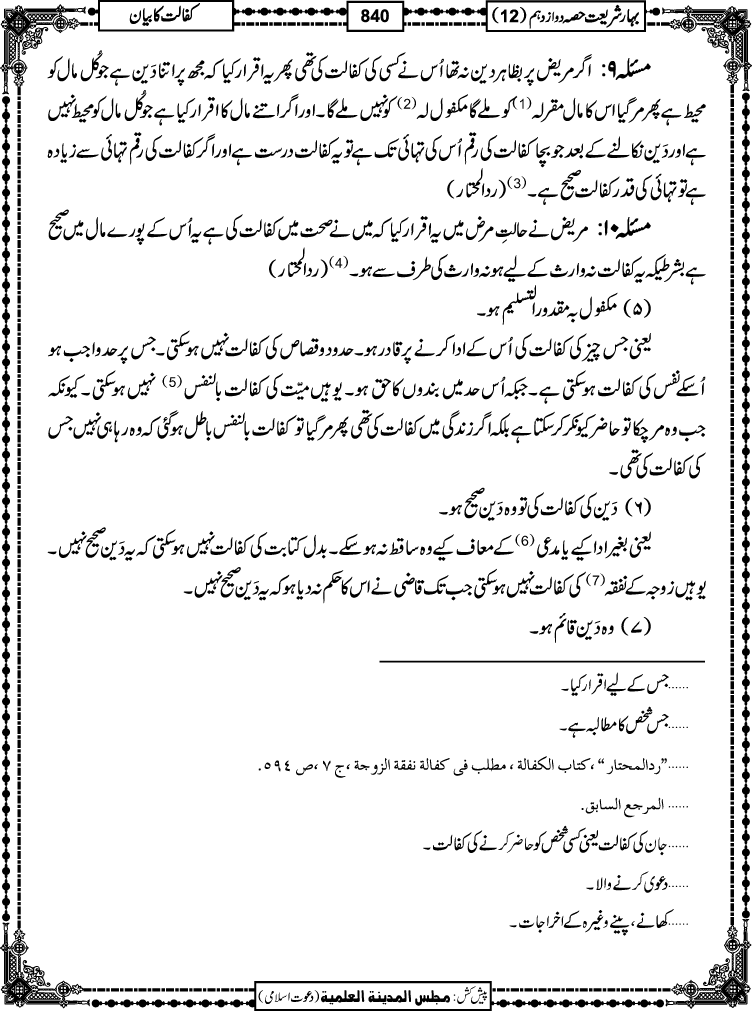 بہارِ شریعت حصہ دوازدہم (12)
840
کفالت کا بیان
مسئلہ ۹: اگر مریض پر بظاہر دین نہ تھا اُس نے کسی کی کفالت کی تھی پھر یہ اقرار کیا کہ مجھ پر اتنا دَین ہے جو کُل مال کو
محیط ہے پھر مر گیا اس کا مال مقرلہ (1) کو ملے گا مکفول لہ (2) کو نہیں ملے گا۔ اور اگر اتنے مال کا اقرار کیا ہے جو کُل مال کو محیط نہیں
ہے اور دَین نکالنے کے بعد جو بچا کفالت کی رقم اُس کی تہائی تک ہے تو یہ کفالت درست ہے اور اگر کفالت کی رقم تہائی سے زیادہ
ہے تو تہائی کی قدر کفالت صحیح ہے۔ (3) (ردالمحتار)
مسئلہ ۱۰: مریض نے حالتِ مرض میں یہ اقرار کیا کہ میں نے صحت میں کفالت کی ہے یہ اُس کے پورے مال میں صحیح
ہے بشرطیکہ یہ کفالت نہ وارث کے لیے ہو نہ وارث کی طرف سے ہو۔ (4) (ردالمحتار)
(۵) مکفول بہ مقدور التسلیم ہو۔
یعنی جس چیز کی کفالت کی اُس کے ادا کرنے پر قادر ہو۔ حدود و قصاص کی کفالت نہیں ہوسکتی۔ جس پر حد واجب ہو
اُسکے نفس کی کفالت ہوسکتی ہے۔ جبکہ اُس حد میں بندوں کا حق ہو۔ یوہیں میّت کی کفالت بالنفس (5) نہیں ہوسکتی۔ کیونکہ
جب وہ مر چکا تو حاضر کیونکر کرسکتا ہے بلکہ اگر زندگی میں کفالت کی تھی پھر مر گیا تو کفالت بالنفس باطل ہوگئی کہ وہ رہا ہی نہیں جس
کی کفالت کی تھی۔
(۶) دَین کی کفالت کی تو وہ دَین صحیح ہو۔
یعنی بغیر ادا کیے یا مدعی (6) کے معاف کیے وہ ساقط نہ ہوسکے۔ بدل کتابت کی کفالت نہیں ہوسکتی کہ یہ دَین صحیح نہیں۔
یوہیں زوجہ کے نفقہ (7) کی کفالت نہیں ہوسکتی جب تک قاضی نے اس کا حکم نہ دیا ہو کہ یہ دَین صحیح نہیں۔
(۷) وہ دَین قائم ہو۔
......جس کے لیے اقرار کیا۔
......جس شخص کا مطالبہ ہے۔
......”ردالمحتار“، کتاب الکفالة، مطلب فی کفالة نفقة الزوجة، ج ۷، ص ۵۹٤.
...... المرجع السابق.
......جان کی کفالت یعنی کسی شخص کو حاضر کرنے کی کفالت۔
......دعوی کرنے والا۔
......کھانے، پینے وغیرہ کے اخراجات۔
پیش کش: مجلس المدینة العلمیة (دعوت اسلامی)